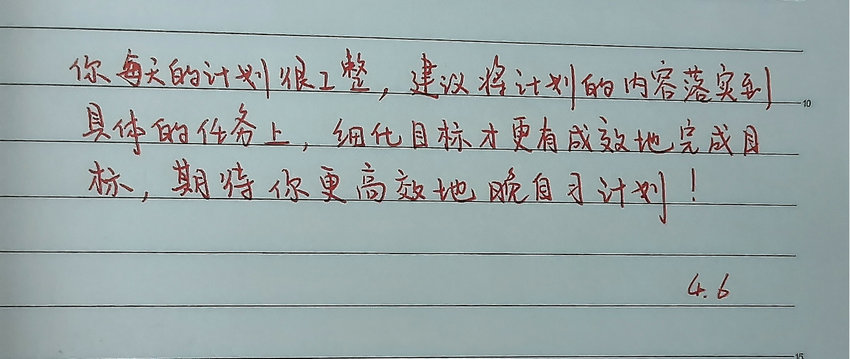 你每天的计划很工整，建议将计划的内容落实到
10
具体的任务上，细化目标才更有成效地完成目
标，期待你更高效地晚自习计划！
4.6
15